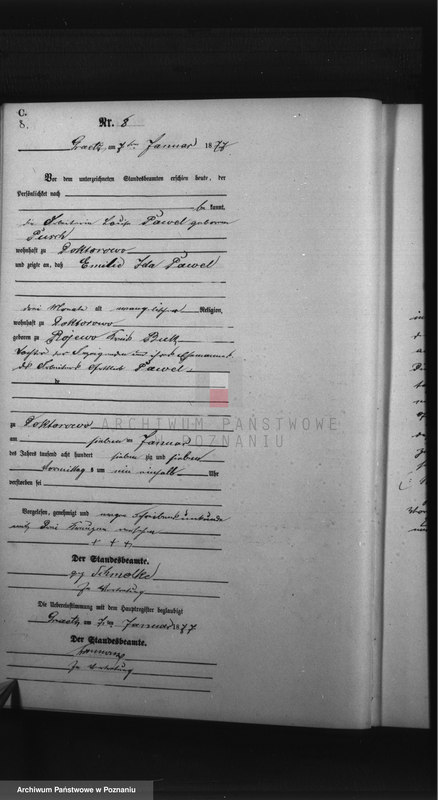 C.
8.
Nr. 8
Graetz am 7ten Januar 1877
Vor dem unterzeichneten Standesbeamten erschien heute, der
Persönlichkeit nach
be kannt,
die Arbeiterin Louise Pawel geborene
Pusch
wohnhaft zu Doktorowo
und zeigte an, daß Emilie Ida Pawel
drei Monate alt evangelischer Religion,
wohnhaft zu Doktorowo
geboren zu Rojewo Kreis Buk
Tochter der Anzeigenden und ihres Ehemannes
des Arbeiters Gottlieb Pawel
zu Doktorowo
am sieben ten Januar
des Jahres tausend acht hundert sieben zig und sieben
Vormittags um ein einhalb Uhr
verstorben sei
Vorgelesen, genehmigt und wegen Schreibensunkunde
mit drei Kreuzen versehen
+ + +
Der Standesbeamte.
In Vertretung
Die Uebereinstimmung mit dem Hauptregister beglaubigt
Graetz am 7ten Januar 1877
Der Standesbeamte.
In Vertretung
ARCHIWUM PAŃSTWOWE
POZNANIU
Archiwum Państwowe w Poznaniu